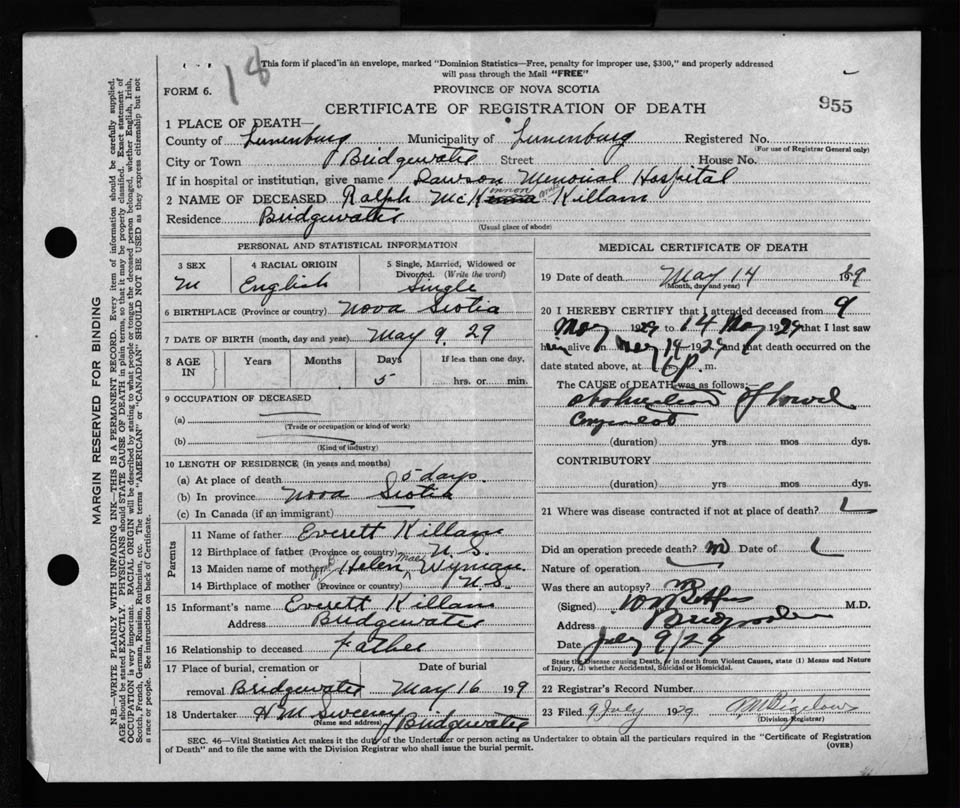 18
This form if placed in an envelope, marked "Dominion Statistics—Free, penalty for improper use, $300," and properly addressed
will pass through the Mail "FREE"
FORM 6.
PROVINCE OF NOVA SCOTIA
CERTIFICATE OF REGISTRATION OF DEATH
955
1 PLACE OF DEATH—
County of Lunenburg Municipality of Lunenburg Registered No.
(For use of Registrar General only)
City or Town Bridgewater Street House No.
If in hospital or institution, give name Dawson Memorial Hospital
2 NAME OF DECEASED Ralph McKinnon Killam
Residence Bridgewater
(Usual place of abode)
PERSONAL AND STATISTICAL INFORMATION
3 SEX
M
4 RACIAL ORIGIN
English
5 Single, Married, Widowed or
Divorced. (Write the word)
Single
6 BIRTHPLACE (Province or country) Nova Scotia
7 DATE OF BIRTH (month, day and year) May 9, 29
8 AGE IN
Years Months Days If less than one day,
5 hrs. or min.
9 OCCUPATION OF DECEASED
(a)
(Trade or occupation or kind of work)
(b)
(Kind of industry)
10 LENGTH OF RESIDENCE (in years and months)
(a) At place of death 5 days.
(b) In province Nova Scotia
(c) In Canada (if an immigrant)
Parents
11 Name of father Everett Killam
12 Birthplace of father (Province or country) N.S.
13 Maiden name of mother Helen Mae Wyman
14 Birthplace of mother (Province or country) N.S.
15 Informant's name Everett Killam
Address Bridgewater
16 Relationship to deceased Father
17 Place of burial, cremation or Date of burial
removal Bridgewater May 16 19 9
18 Undertaker H M Sweeney Bridgewater
(Name and address)
MEDICAL CERTIFICATE OF DEATH
19 Date of death May 14 19 9
(Month, day and year)
20 I HEREBY CERTIFY that I attended deceased from 9
May 1929 to 14 May 1929 that I last saw
him alive on May 14 1929 and that death occurred on the
date stated above, at 6 P. m.
The CAUSE of DEATH was as follows:
obstruction of bowel
Congenital
(duration) yrs mos dys.
CONTRIBUTORY
(duration) yrs mos dys.
21 Where was disease contracted if not at place of death?
Did an operation precede death? no Date of
Nature of operation
Was there an autopsy?
(Signed) M.D.
Address Bridgewater
Date July 9/29
State the Disease causing Death, or in death from Violent Causes, state (1) Means and Nature
of Injury, (2) whether Accidental, Suicidal or Homicidal.
22 Registrar's Record Number
23 Filed 9 July 1929 Bigelow
(Division Registrar)
SEC. 46—Vital Statistics Act makes it the duty of the Undertaker or person acting as Undertaker to obtain all the particulars required in the "Certificate of Registration
of Death" and to file the same with the Division Registrar who shall issue the burial permit.
(OVER)
MARGIN RESERVED FOR BINDING
N.B.—WRITE PLAINLY WITH UNFADING INK—THIS IS A PERMANENT RECORD. Every item of information should be carefully supplied.
AGE should be stated EXACTLY. PHYSICIANS should STATE CAUSE OF DEATH in plain terms, so that it may be properly classified. Exact statement of
OCCUPATION is very important. RACIAL ORIGIN will be described by stating to what people or tongue the deceased person belonged, whether English, Irish,
Scotch, French, German, Russian, Ruthenian, etc. The terms "AMERICAN" or "CANADIAN" SHOULD NOT BE USED as they express citizenship but not
a race or people. See instructions on back of Certificate.